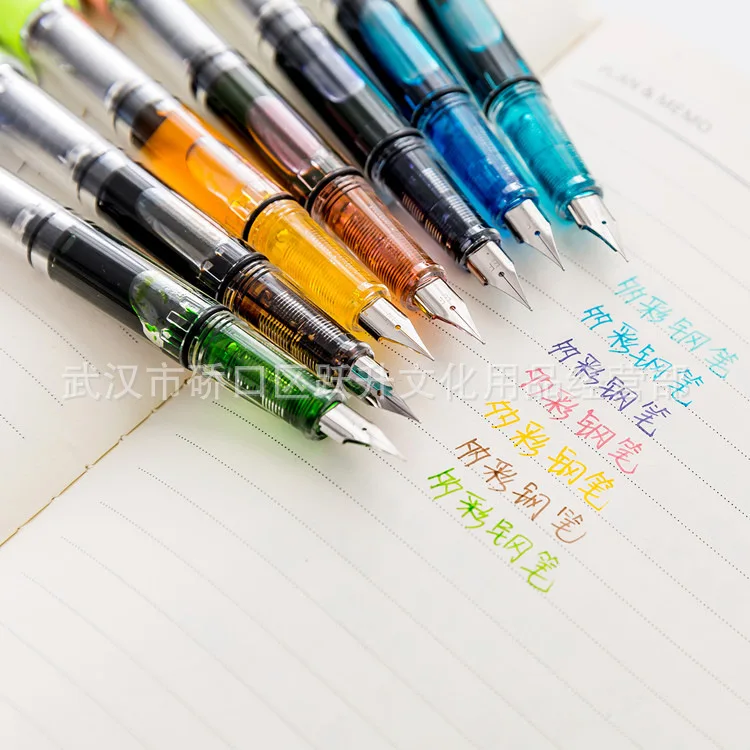 PLAN & MEMO
多彩钢笔
多彩钢笔
多彩钢笔
多彩钢笔
多彩钢笔
多彩钢笔
多彩钢笔
武汉市硚口区跃升文化用品经营部